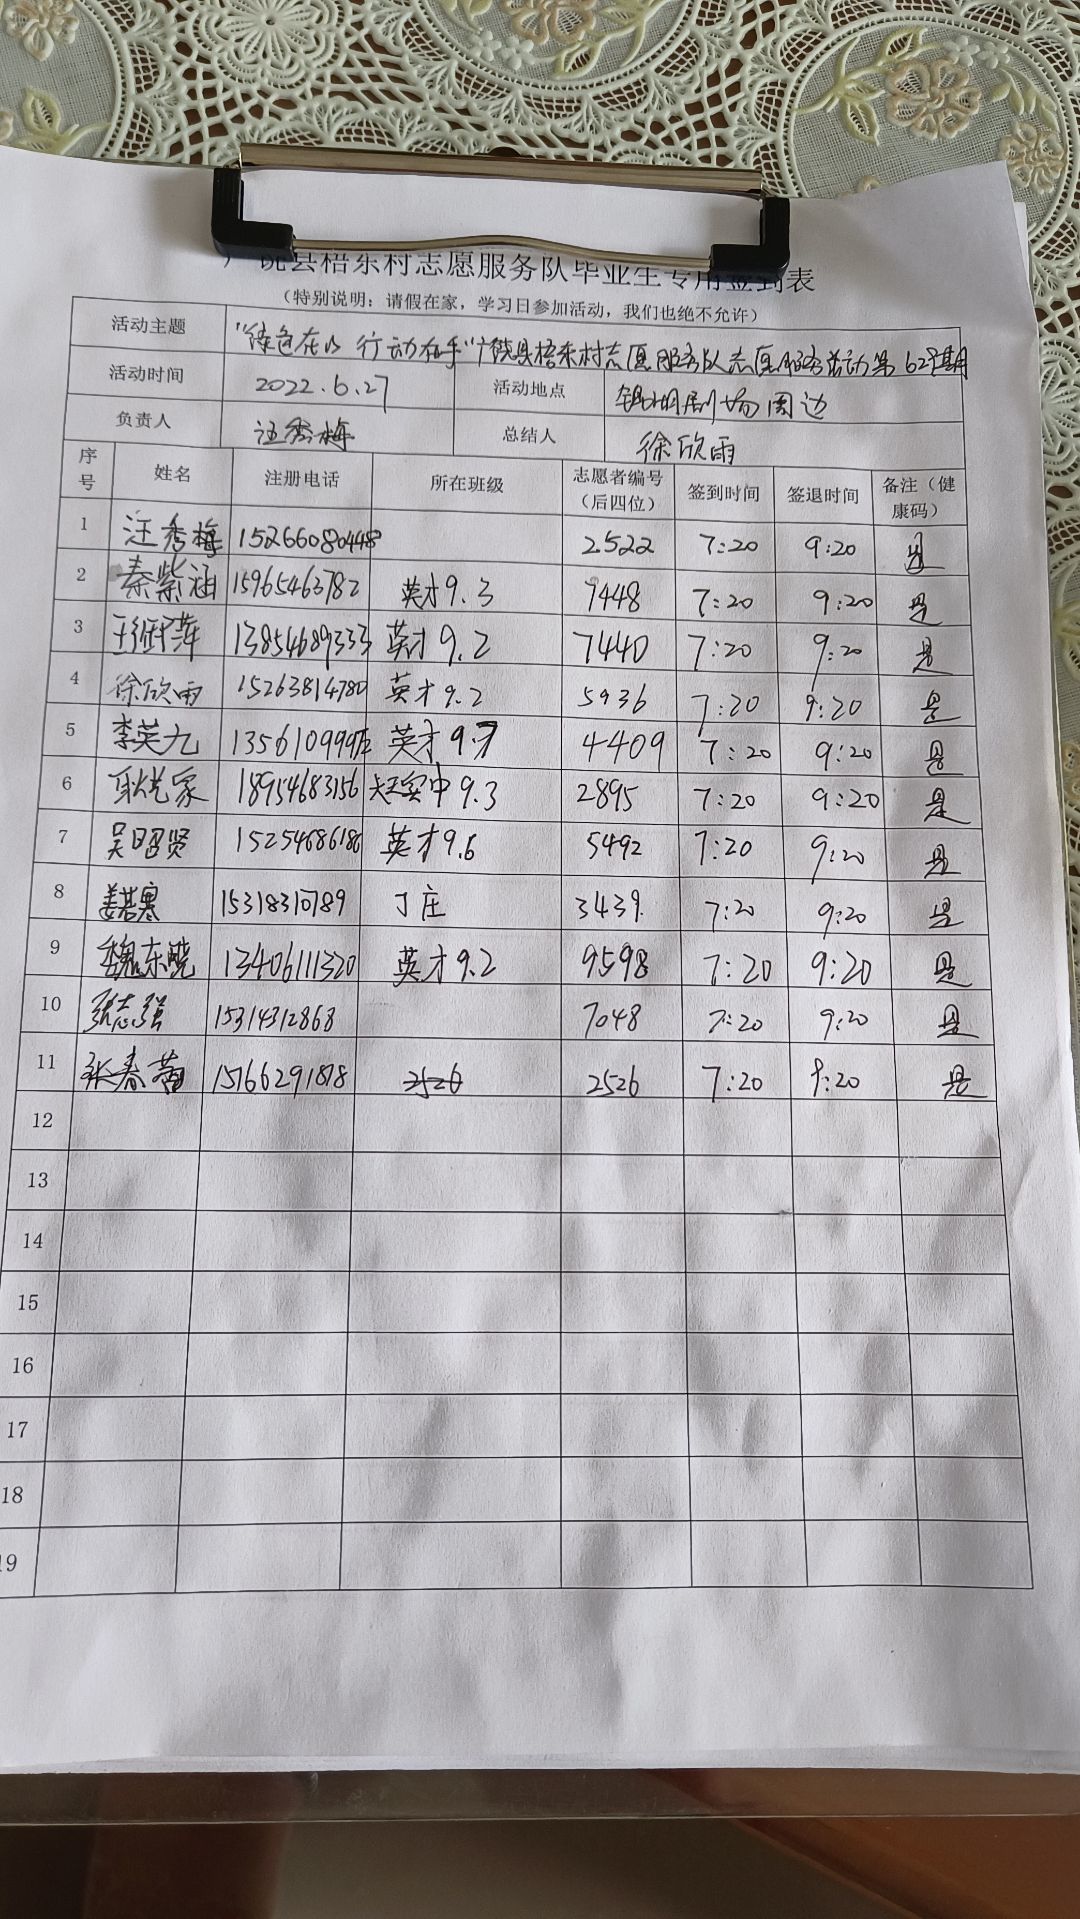 饶县梧东村志愿服务队毕业生专用签到表
（特别说明：请假在家，学习日参加活动，我们也绝不允许）
活动主题 "绿色在心 行动在手"广饶县梧东村志愿服务队志愿服务活动第62期
活动时间 2022.6.27 活动地点 剧场周边
负责人 汪秀梅 总结人 徐欣雨
序号 姓名 注册电话 所在班级 志愿者编号（后四位） 签到时间 签退时间 备注（健康码）
1 汪秀梅 15266080448 2522 7:20 9:20 是
2 秦紫涵 15965463782 英才9.3 7448 7:20 9:20 是
3 13854689333 英才9.2 7440 7:20 9:20 是
4 徐欣雨 15263814780 英才9.2 5936 7:20 9:20 是
5 李英九 英才9.7 4409 7:20 9:20 是
6 耿悦家 18954683156 大王实中9.3 2895 7:20 9:20 是
7 吴昭贤 15254686186 英才9.6 5492 7:20 9:20 是
8 姜若寒 15318310789 丁庄 3439 7:20 9:20 是
9 魏东晓 13406111320 英才9.2 9598 7:20 9:20 是
10 张志强 15314312868 7048 7:20 9:20 是
11 张春茜 15766291878 2526 2526 7:20 9:20 是
12
13
14
15
16
17
18
19